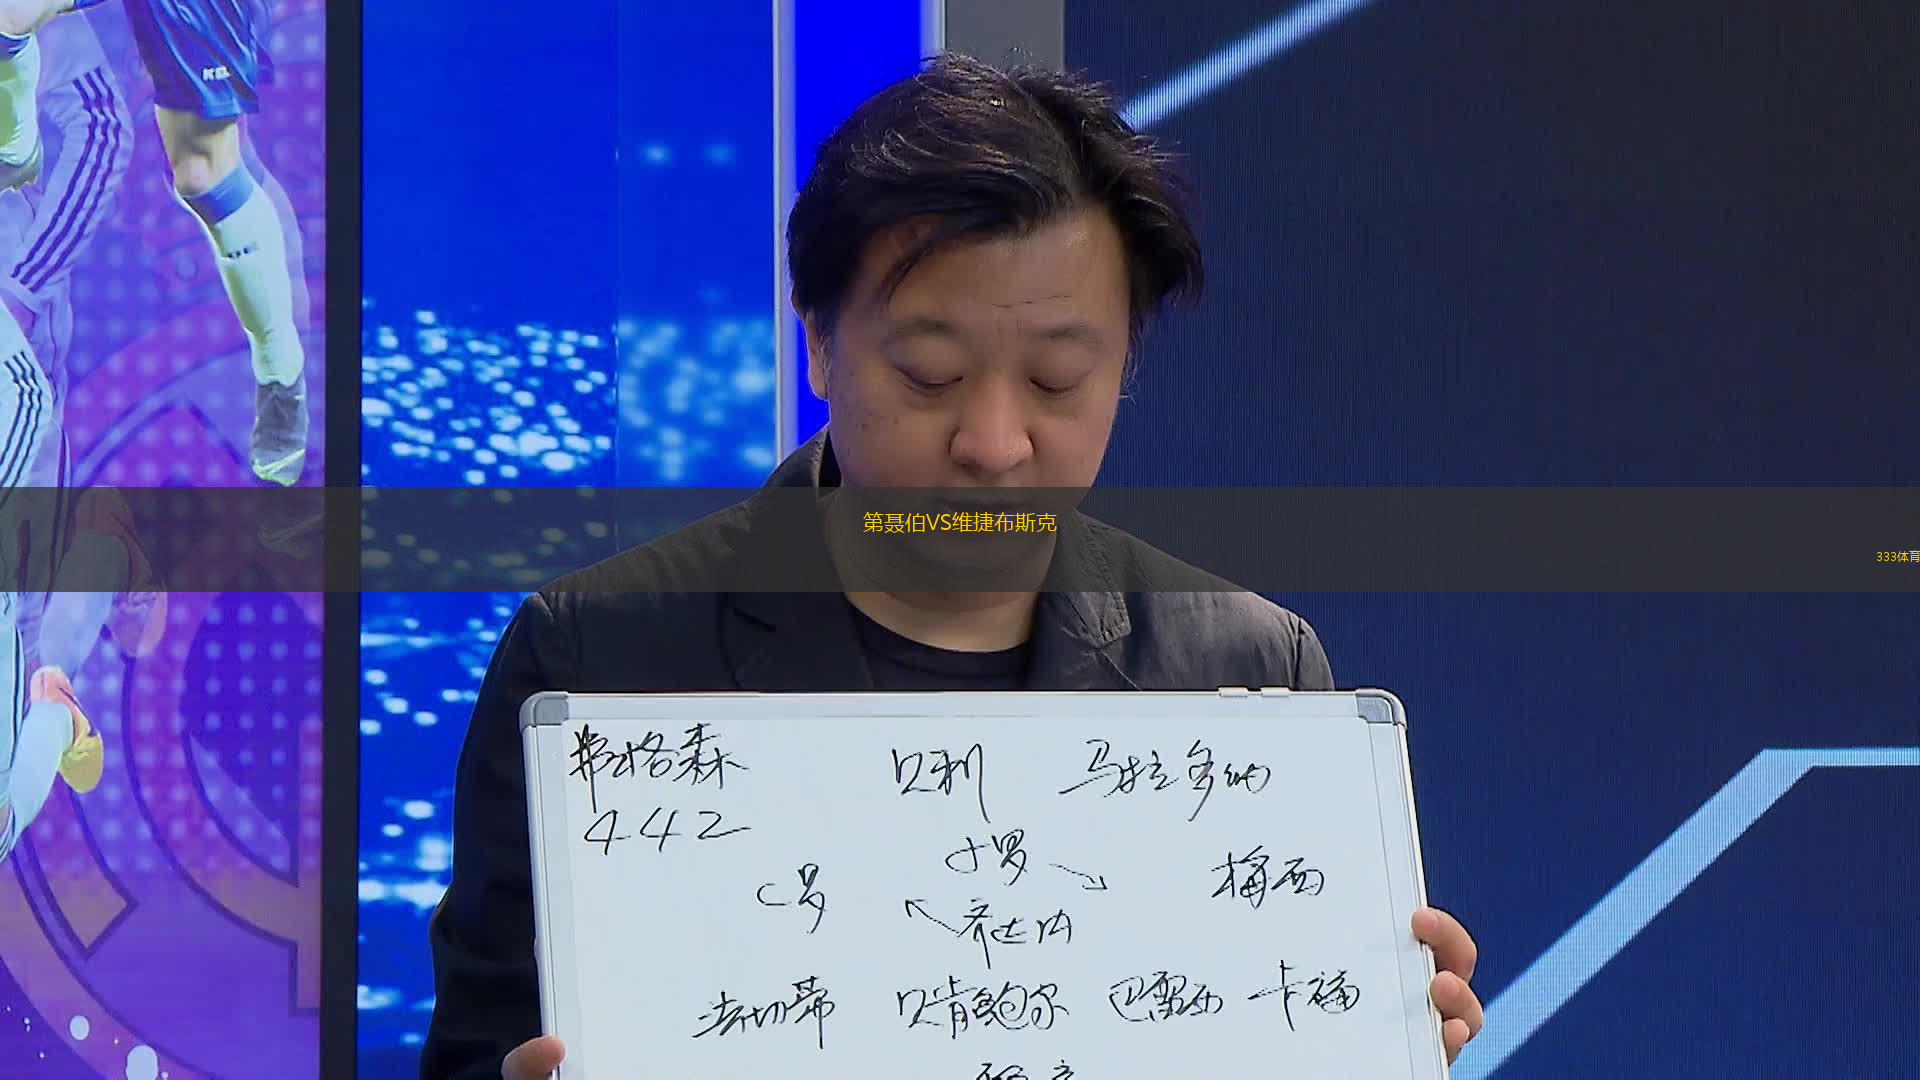 第聂伯VS维捷布斯克
333体育
弗格森 贝利 马拉多纳
442
小罗
C罗 梅西
齐达内
法切蒂 贝肯鲍尔 巴雷西 卡福